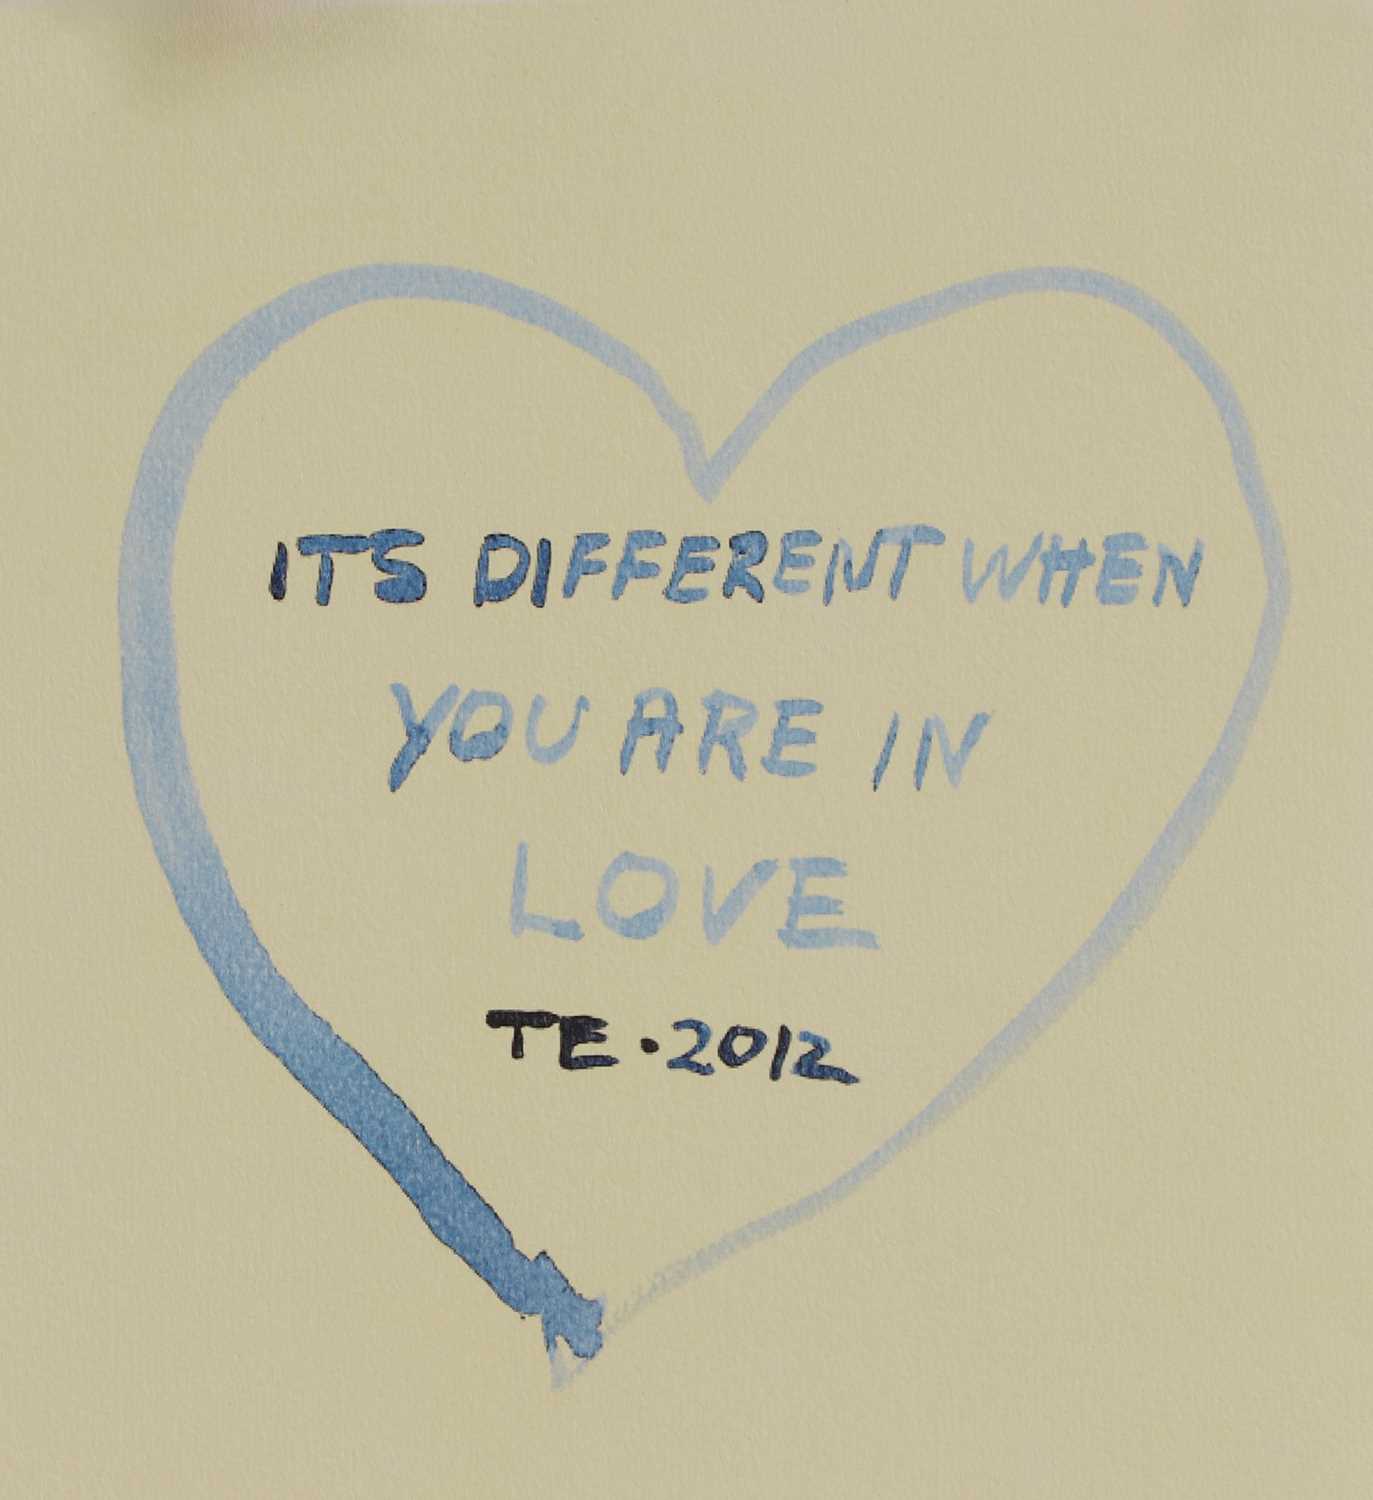 ITS DIFFERENT WHEN
YOU ARE IN
LOVE
TE·2012